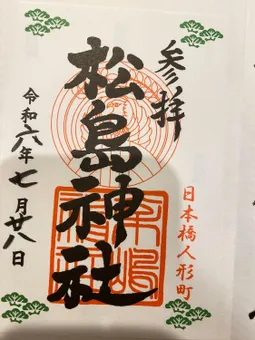 参拝
松島神社
日本橋人形町
令和六年七月廿八日